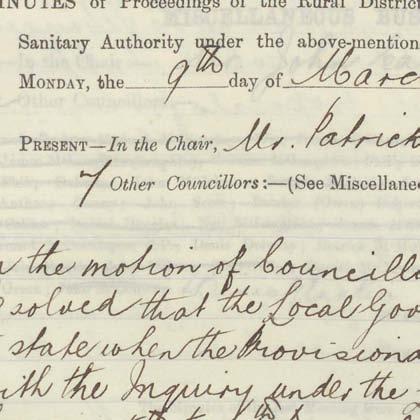 MINUTES of Proceedings of the Rural District
Sanitary Authority under the above-mention
MONDAY, the 9th day of Marc
PRESENT—In the Chair, Mr. Patrick
7 Other Councillors:—(See Miscellane
the motion of Councill
solved that the Local Gov
state when the Provisiona
ith the Inquiry under the